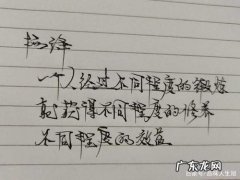 一个人经过不同程度的锻炼
就获得不同程度的修养
不同程度的效益
广东龙网